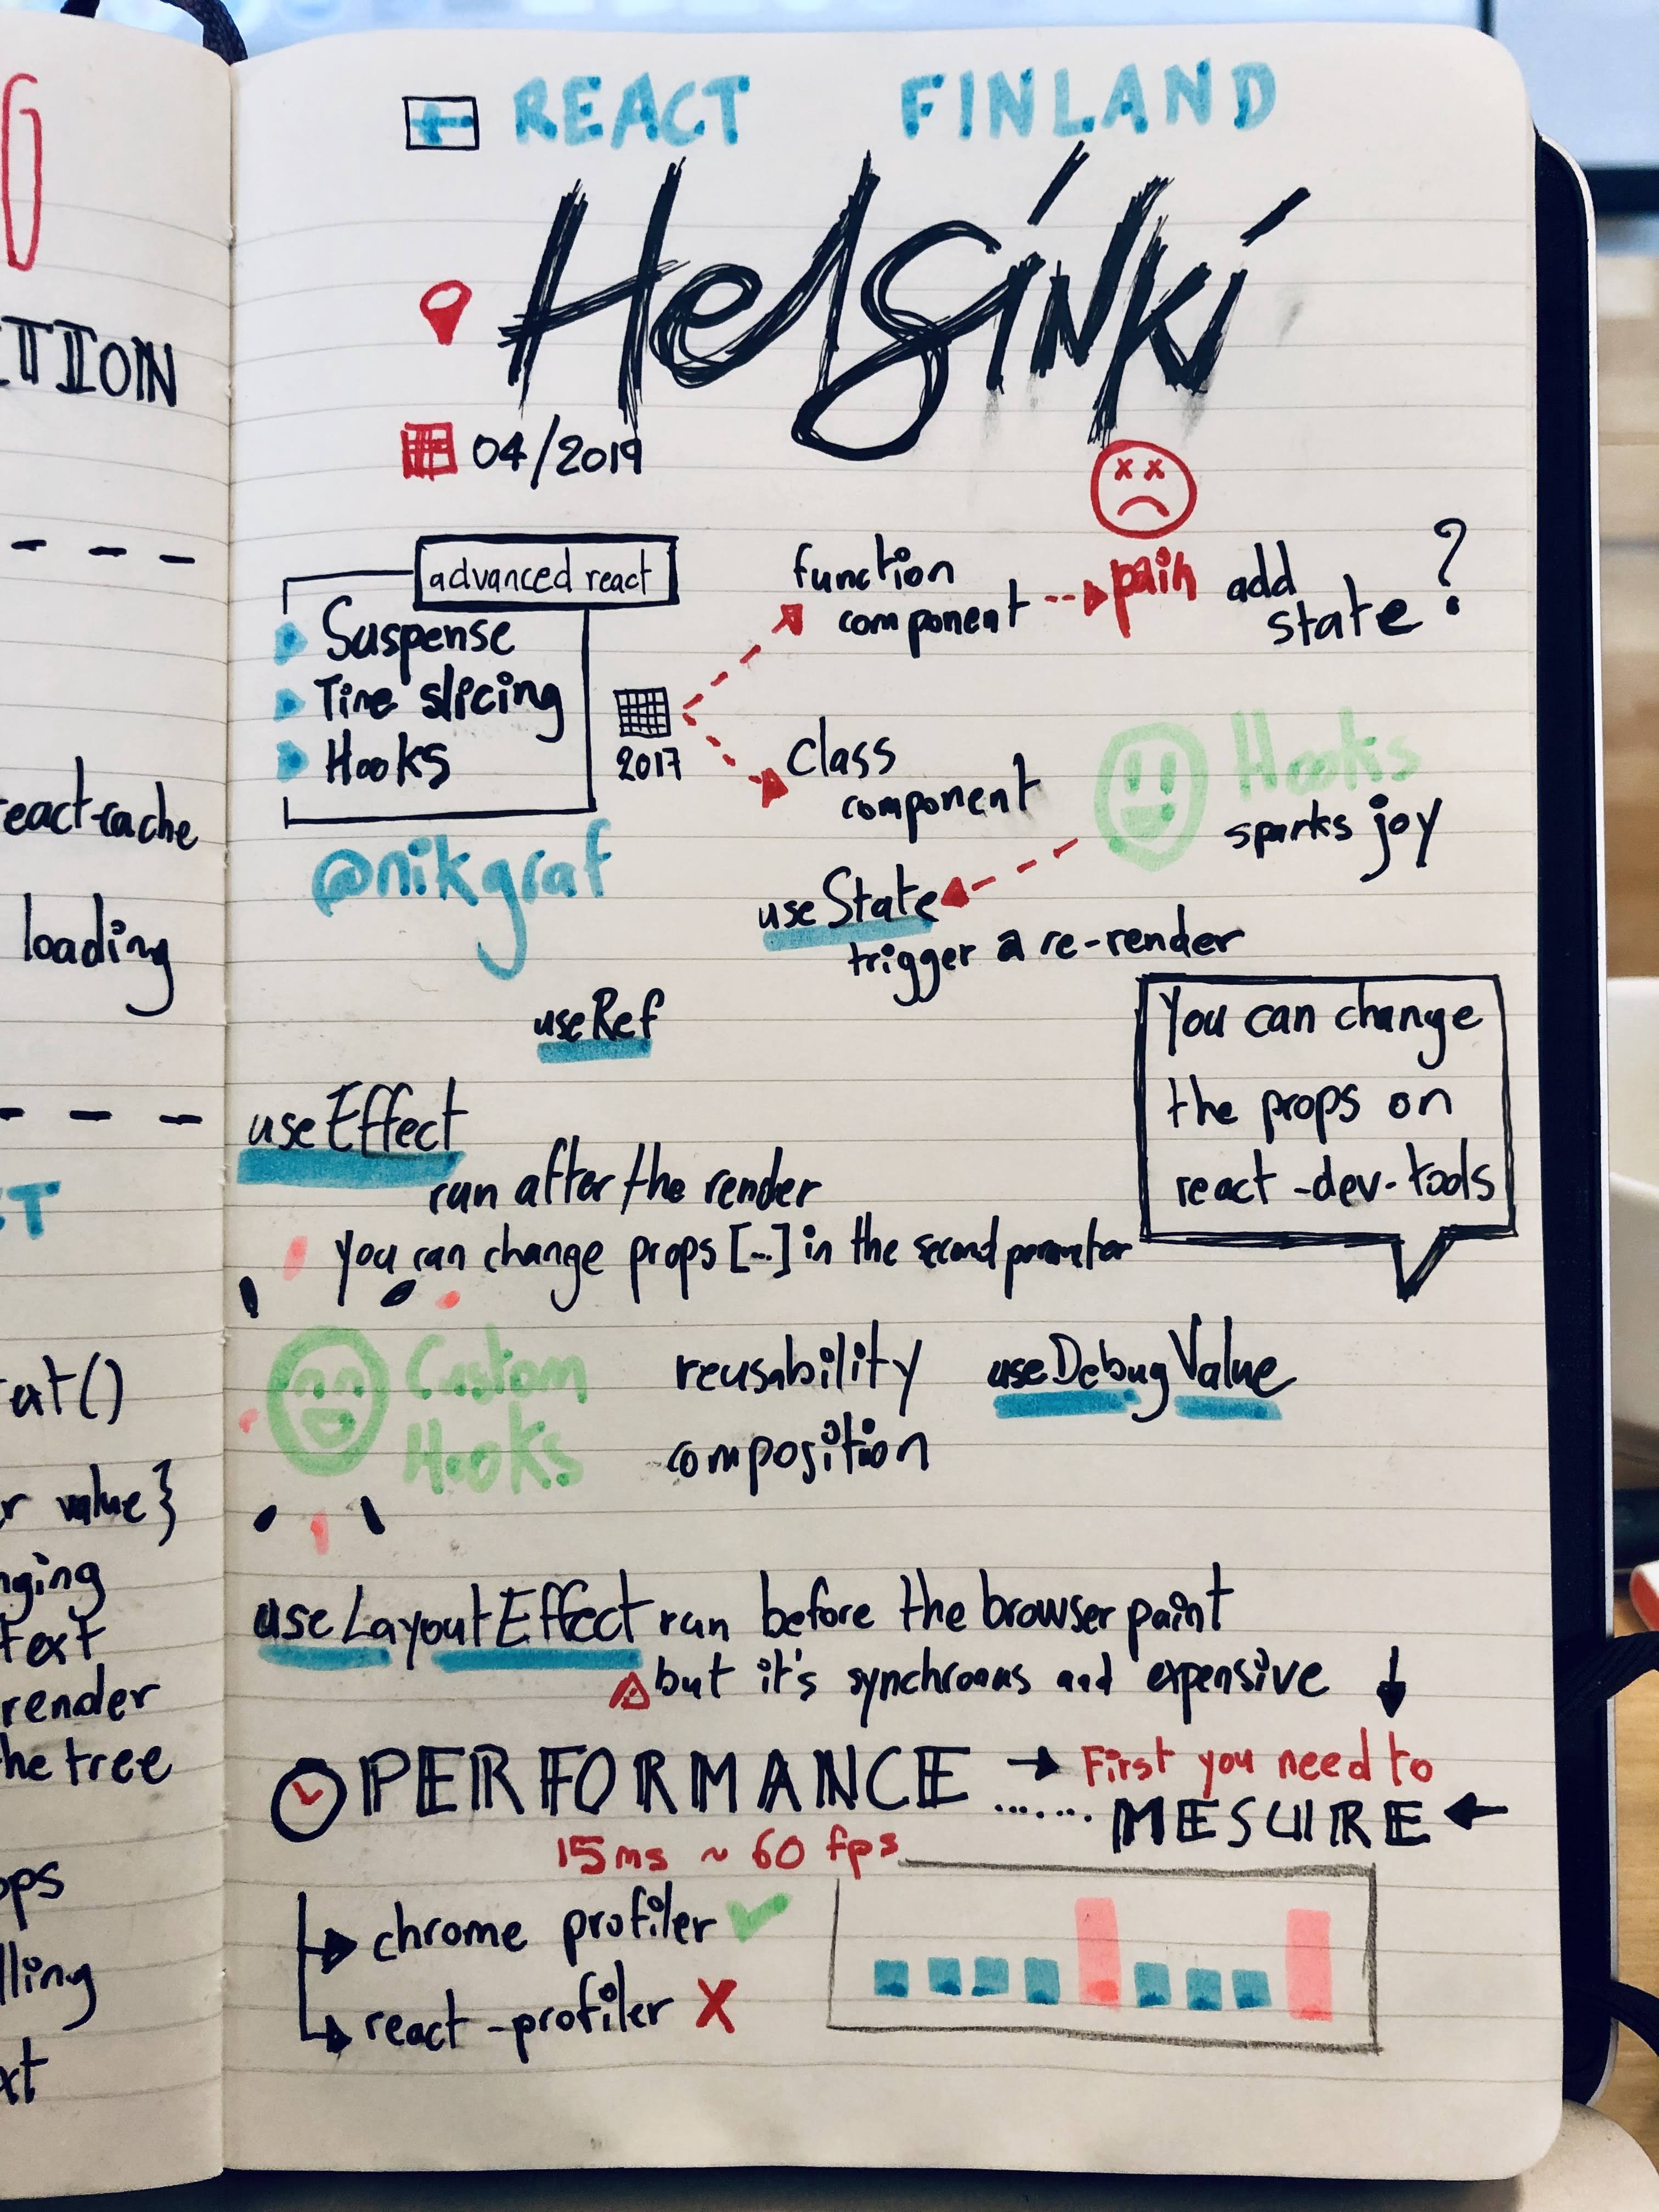 G
CTION
eact-cache
loading
ST
ext()
r value}
nging
text
render
he tree
ops
lling
xt
REACT FINLAND
Helsinki
04/2019
advanced react
Suspense
Time slicing
Hooks
@nikgraf
2017
function
component
pain
add
state ?
class
component
Hooks
sparks joy
useState
trigger a re-render
useRef
You can change
the props on
react-dev-tools
useEffect
run after the render
you can change props [...] in the second parameter
Custom
Hooks
reusability
composition
useDebugValue
useLayoutEffect run before the browser paint
but it's synchronous and expensive
PERFORMANCE
First you need to
MESURE
15ms ~ 60 fps
chrome profiler
react-profiler X